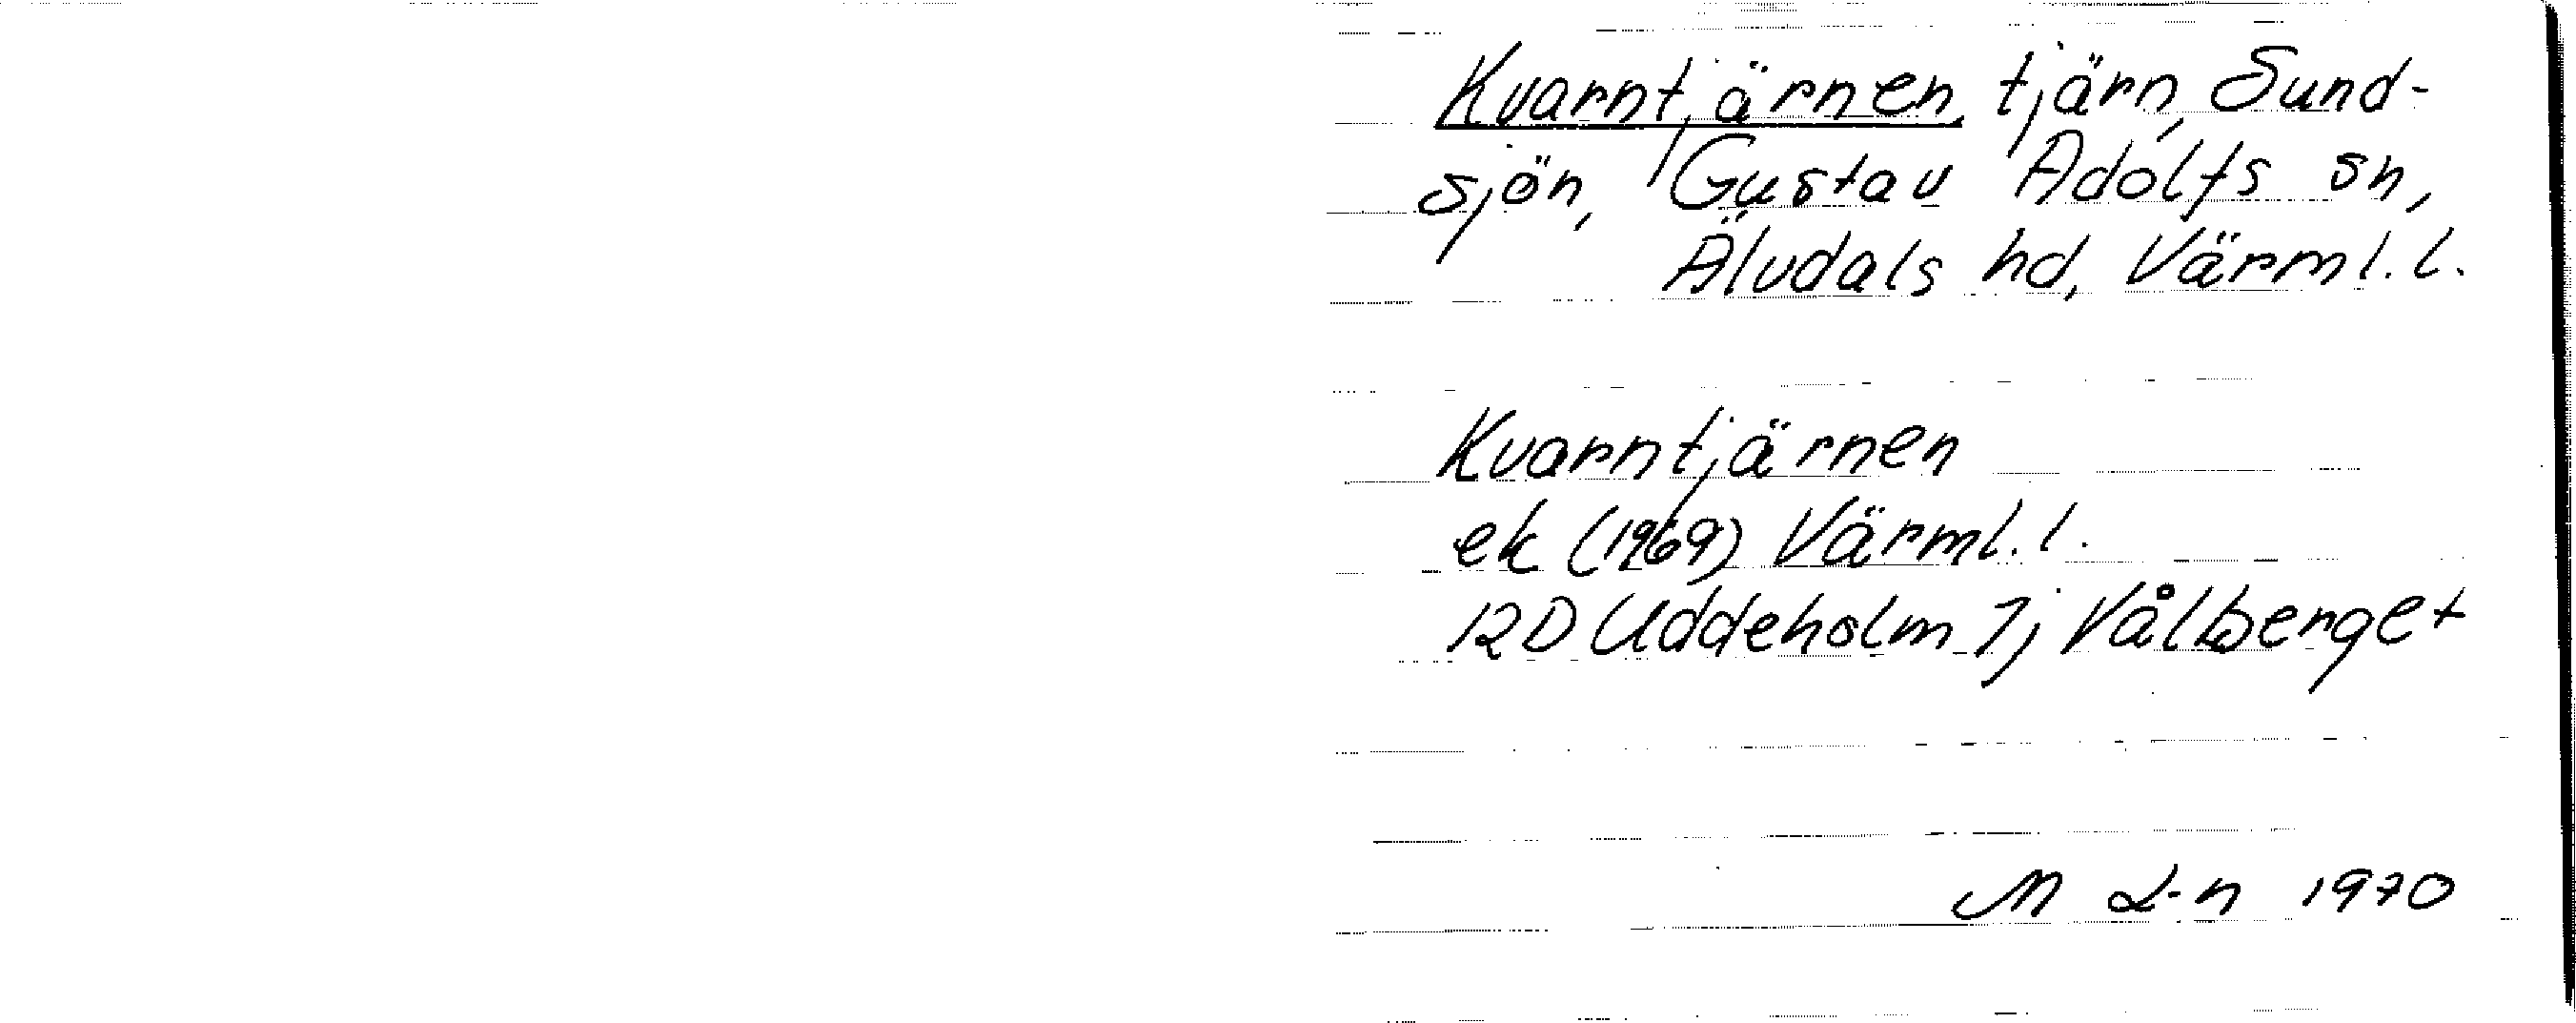 Kvarntjärnen, tjärn, Sund-
sjön, Gustav Adolfs sn,
Älvdals hd, Värml. l.
Kvarntjärnen
ek (1969) Värml. l.
12D Uddeholm 7j Vålberget
M L-n 1970